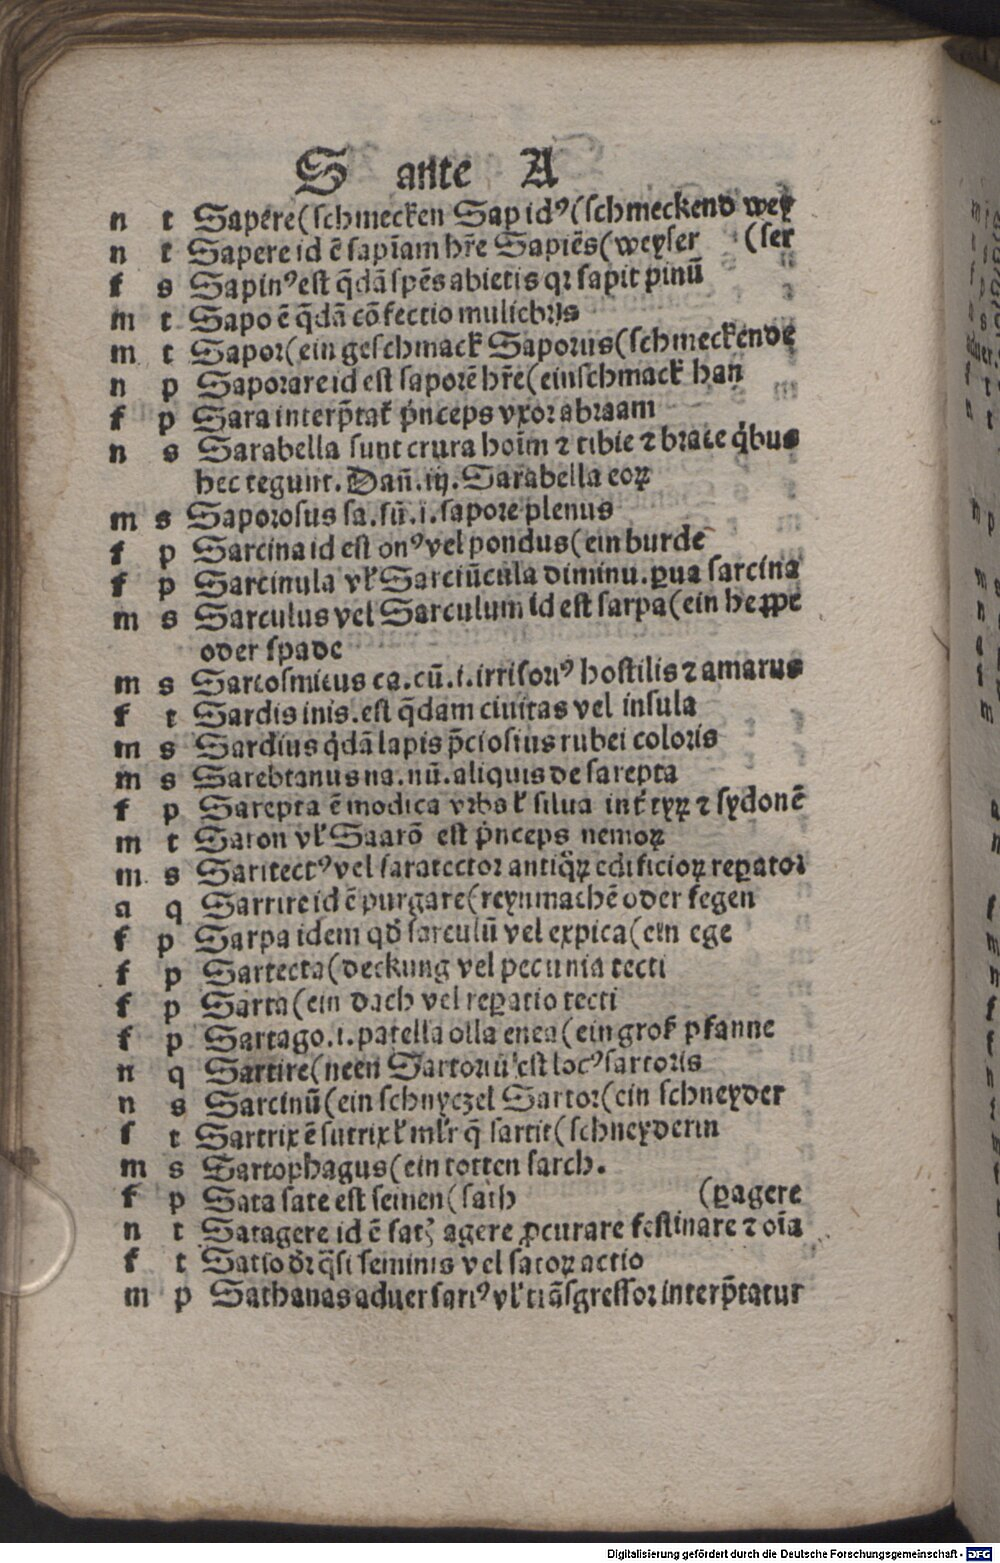 S ante A
n t Sapere(schmecken Sapidꝰ(schmeckend wey
n t Sapere id ē sapīam hr̄e Sapiēs(weyser (ser
f s Sapinꝰ est q̄dā spēs abietis qꝛ sapit pinū
m t Sapo ē q̄dā cōfectio muliebrꝭs
m t Sapor(ein geschmack Saporus(schmeckende
n p Saporare id est saporē hr̄e(einschmack han
f p Sara interp̄tat̄ p̄nceps vxor abraam
n s Sarabella sunt crura hoīm ⁊ tibie ⁊ brace q̇bus
hec tegunt. Dañ.iij. Sarabella eoꝝ
m s Saporosus sa.sū.i.sapore plenus
f p Sarcina id est onꝰ vel pondus(ein burde
f p Sarcinula vl̓ Sarciūcula diminu.ꝑua sarcina
m s Sarculus vel Sarculum id est sarpa(ein heppe
oder spade
m s Sarcosmicus ca.cū.i.irrisoriꝰ hostilis ⁊ amarus
f t Sardis inis.est q̄dam ciuitas vel insula
m s Sardius q̇dā lapis p̄ciosius rubei coloris
m s Sarebtanus na.nū.aliquis de sarepta
f p Sarepta ē modica vrbs l̓ silua int̓ tyꝝ ⁊ sydonē
m t Saron vl̓ Saarō est p̄nceps nemoꝝ
m s Saritectꝰ vel saratector antiq̄ꝝ edificioꝝ reꝑator
a q Sarrire id ē purgare(reynmachē oder fegen
f p Sarpa idem qđ sarculū vel expica(ein ege
f p Sartecta(deckung vel pecunia tecti
f p Sarta(ein dach vel reꝑatio tecti
f p Sartago.i.patella olla enea(ein groſ̓ pfanne
n q Sartire(neen Sartoriū est locꝰ sartoris
n s Sarcinū(ein schnyczel Sartor(ein schneyder
f t Sartrix ē sutrix l̓ ml̓r q̄ sartit(schneyderin
m s Sartophagus(ein totten sarch.
f p Sata sate est semen(sath (ꝑagere
n t Satagere id ē satꝭ agere ꝓcurare festinare ⁊ oīa
f t Satio dr̄ q̄si seminis vel satoꝝ actio
m p Sathanas aduersariꝰ vl̓ trāsgressor interp̄tatur
Digitalisierung gefördert durch die Deutsche Forschungsgemeinschaft - DFG